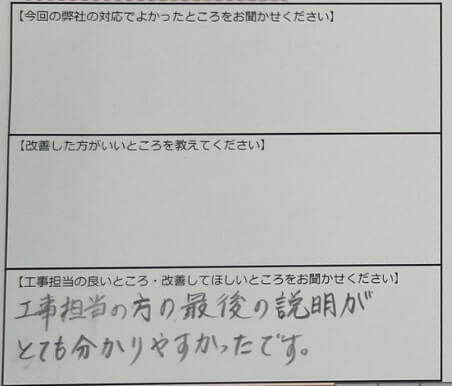 【今回の弊社の対応でよかったところをお聞かせください】
【改善した方がいいところを教えてください】
【工事担当の良いところ・改善してほしいところをお聞かせください】
工事担当の方の最後の説明が
とても分かりやすかったです。